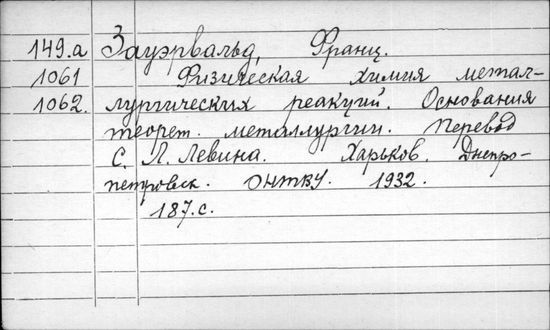 149.а Зауэрвальд, Франц.
1061 Физическая химия метал-
1062. лургических реакций. Основания
теорет. металлургии. Перевод
С. Л. Левина. Харьков. Днепро-
петровск. ОНТВУ. 1932.
187.с.